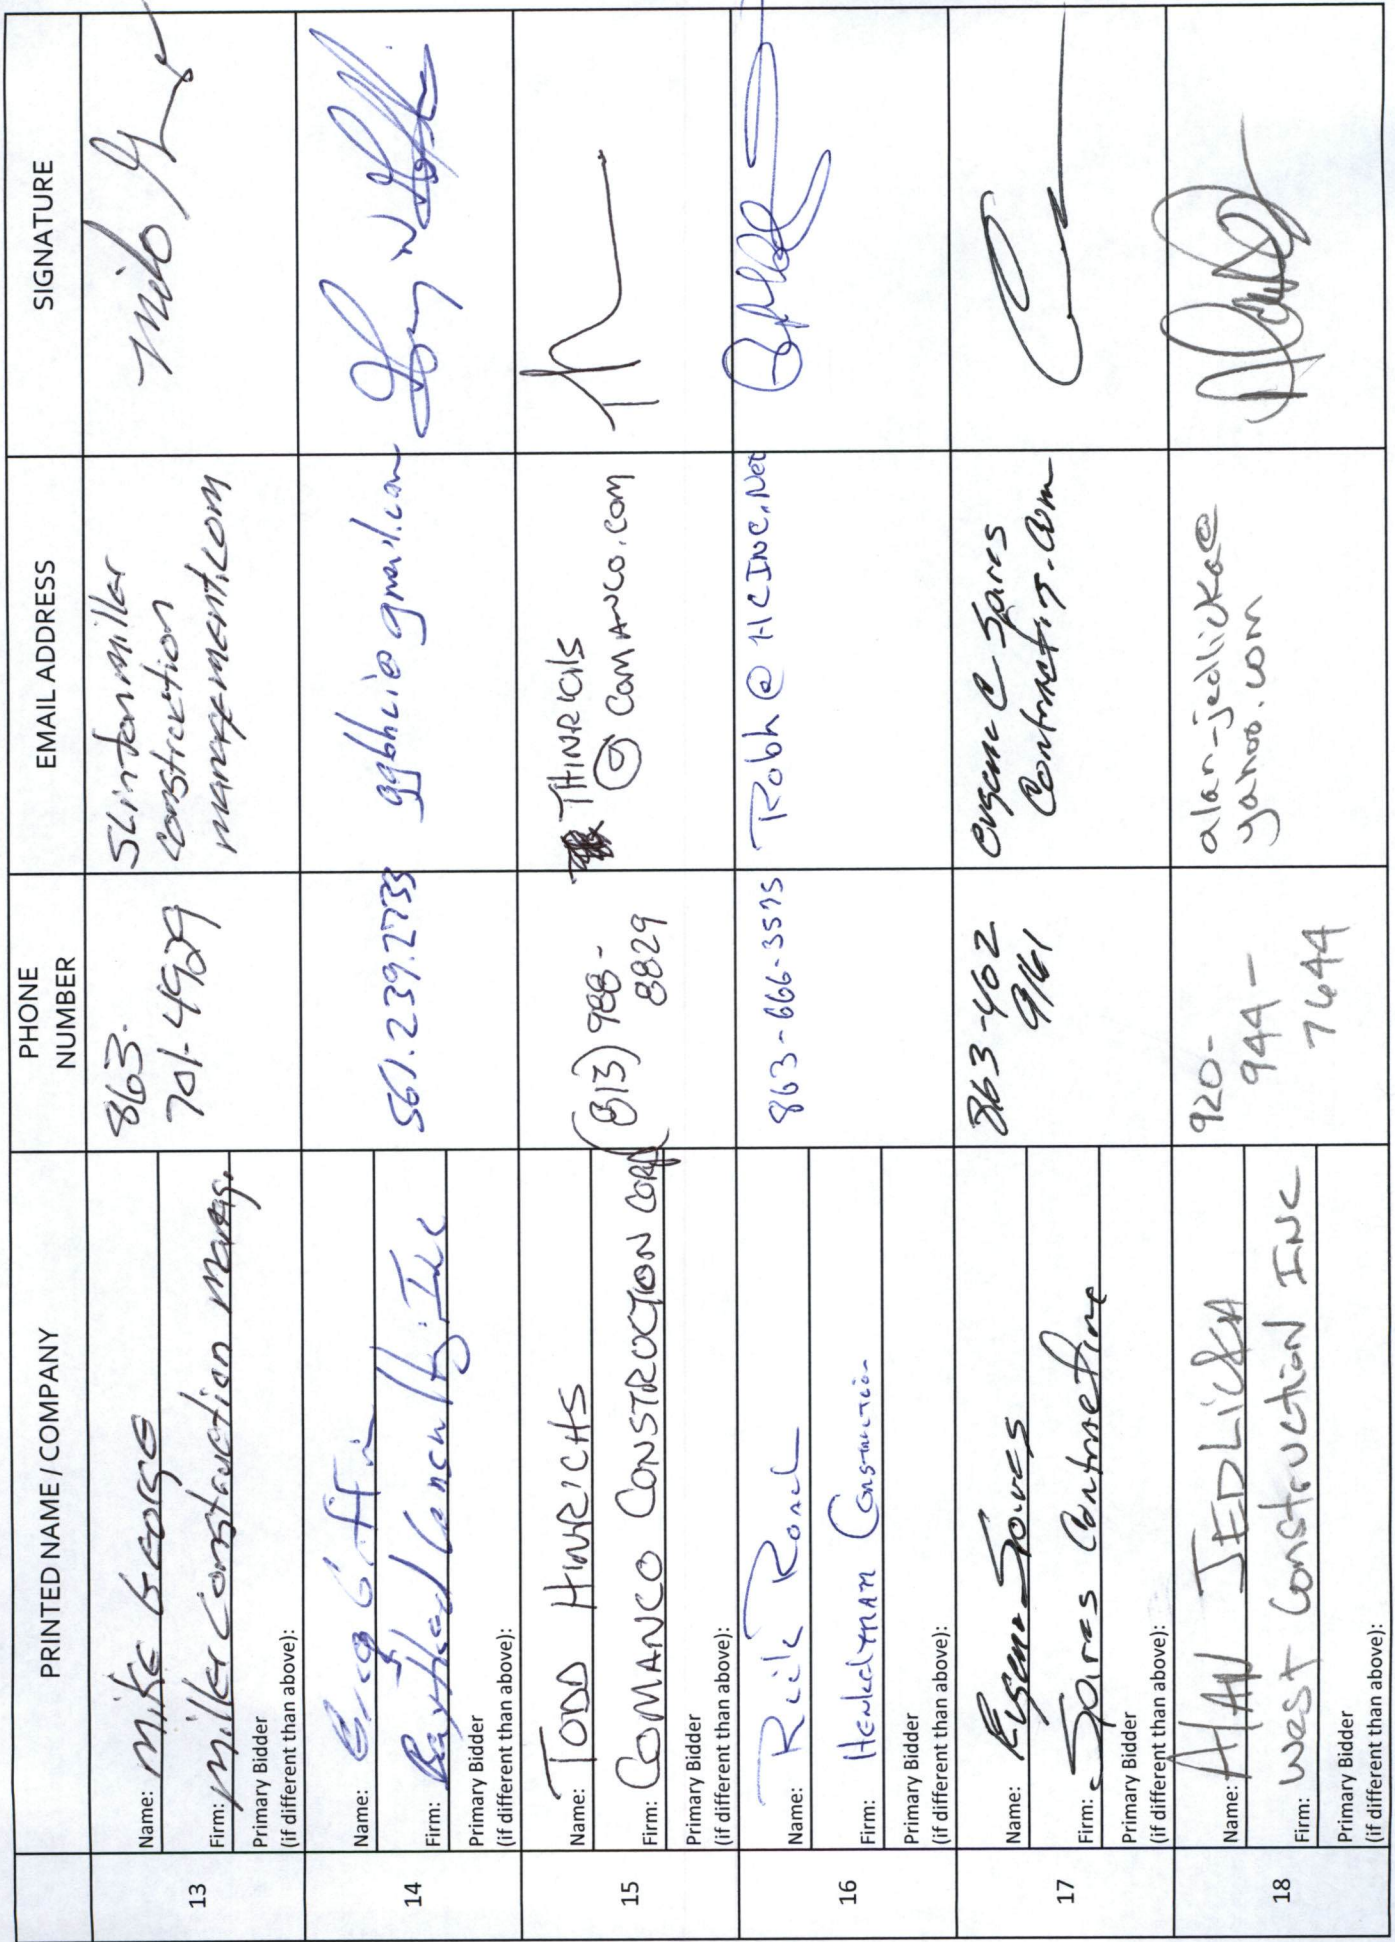 PRINTED NAME / COMPANY
PHONE
NUMBER
EMAIL ADDRESS
SIGNATURE
13
Name: Mike George
Firm: Miller Construction
Primary Bidder
(if different than above):
863-
701-4929
construction
management.com
14
Name: Greg
Firm: Consulting Inc
Primary Bidder
(if different than above):
561.239.2733
@gmail.com
15
Name: TODD HINRICHS
Firm: COMANCO CONSTRUCTION CORP
Primary Bidder
(if different than above):
(813) 988-
8829
THINRICHS
@ COMANCO.COM
16
Name: Rick
Firm: Henkelman Construction
Primary Bidder
(if different than above):
863-666-3595
@ HCINC.Net
17
Name: Eugene
Firm: Contracting
Primary Bidder
(if different than above):
863-402
9161
Contracting.com
18
Name: AlAN JEDLICKA
Firm: West Construction INC
Primary Bidder
(if different than above):
920-
944-
7644
alan-jedlicka@
yahoo.com